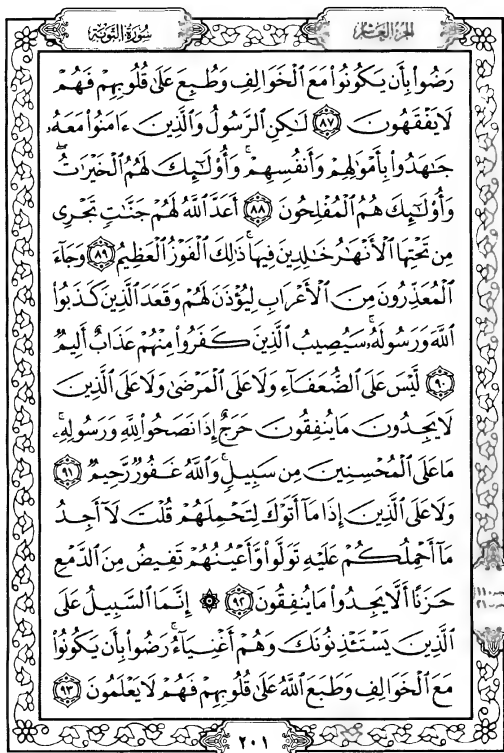 سُورَةُ التَّوْبَةِ
الجزء العاشر
رَضُوا۟ بِأَن يَكُونُوا۟ مَعَ ٱلْخَوَالِفِ وَطُبِعَ عَلَىٰ قُلُوبِهِمْ فَهُمْ
لَا يَفْقَهُونَ ٨٧ لَٰكِنِ ٱلرَّسُولُ وَٱلَّذِينَ ءَامَنُوا۟ مَعَهُۥ
جَٰهَدُوا۟ بِأَمْوَٰلِهِمْ وَأَنفُسِهِمْ ۚ وَأُو۟لَٰٓئِكَ لَهُمُ ٱلْخَيْرَٰتُ ۖ
وَأُو۟لَٰٓئِكَ هُمُ ٱلْمُفْلِحُونَ ٨٨ أَعَدَّ ٱللَّهُ لَهُمْ جَنَّٰتٍ تَجْرِى
مِن تَحْتِهَا ٱلْأَنْهَٰرُ خَٰلِدِينَ فِيهَا ۚ ذَٰلِكَ ٱلْفَوْزُ ٱلْعَظِيمُ ٨٩ وَجَآءَ
ٱلْمُعَذِّرُونَ مِنَ ٱلْأَعْرَابِ لِيُؤْذَنَ لَهُمْ وَقَعَدَ ٱلَّذِينَ كَذَبُوا۟
ٱللَّهَ وَرَسُولَهُۥ ۚ سَيُصِيبُ ٱلَّذِينَ كَفَرُوا۟ مِنْهُمْ عَذَابٌ أَلِيمٌ
٩٠ لَّيْسَ عَلَى ٱلضُّعَفَآءِ وَلَا عَلَى ٱلْمَرْضَىٰ وَلَا عَلَى ٱلَّذِينَ
لَا يَجِدُونَ مَا يُنفِقُونَ حَرَجٌ إِذَا نَصَحُوا۟ لِلَّهِ وَرَسُولِهِۦ ۚ
مَا عَلَى ٱلْمُحْسِنِينَ مِن سَبِيلٍ ۚ وَٱللَّهُ غَفُورٌ رَّحِيمٌ ٩١
وَلَا عَلَى ٱلَّذِينَ إِذَا مَآ أَتَوْكَ لِتَحْمِلَهُمْ قُلْتَ لَآ أَجِدُ
مَآ أَحْمِلُكُمْ عَلَيْهِ تَوَلَّوا۟ وَّأَعْيُنُهُمْ تَفِيضُ مِنَ ٱلدَّمْعِ
حَزَنًا أَلَّا يَجِدُوا۟ مَا يُنفِقُونَ ٩٢ ۞ إِنَّمَا ٱلسَّبِيلُ عَلَى
ٱلَّذِينَ يَسْتَـْٔذِنُونَكَ وَهُمْ أَغْنِيَآءُ ۚ رَضُوا۟ بِأَن يَكُونُوا۟
مَعَ ٱلْخَوَالِفِ وَطَبَعَ ٱللَّهُ عَلَىٰ قُلُوبِهِمْ فَهُمْ لَا يَعْلَمُونَ ٩٣
٢٠١